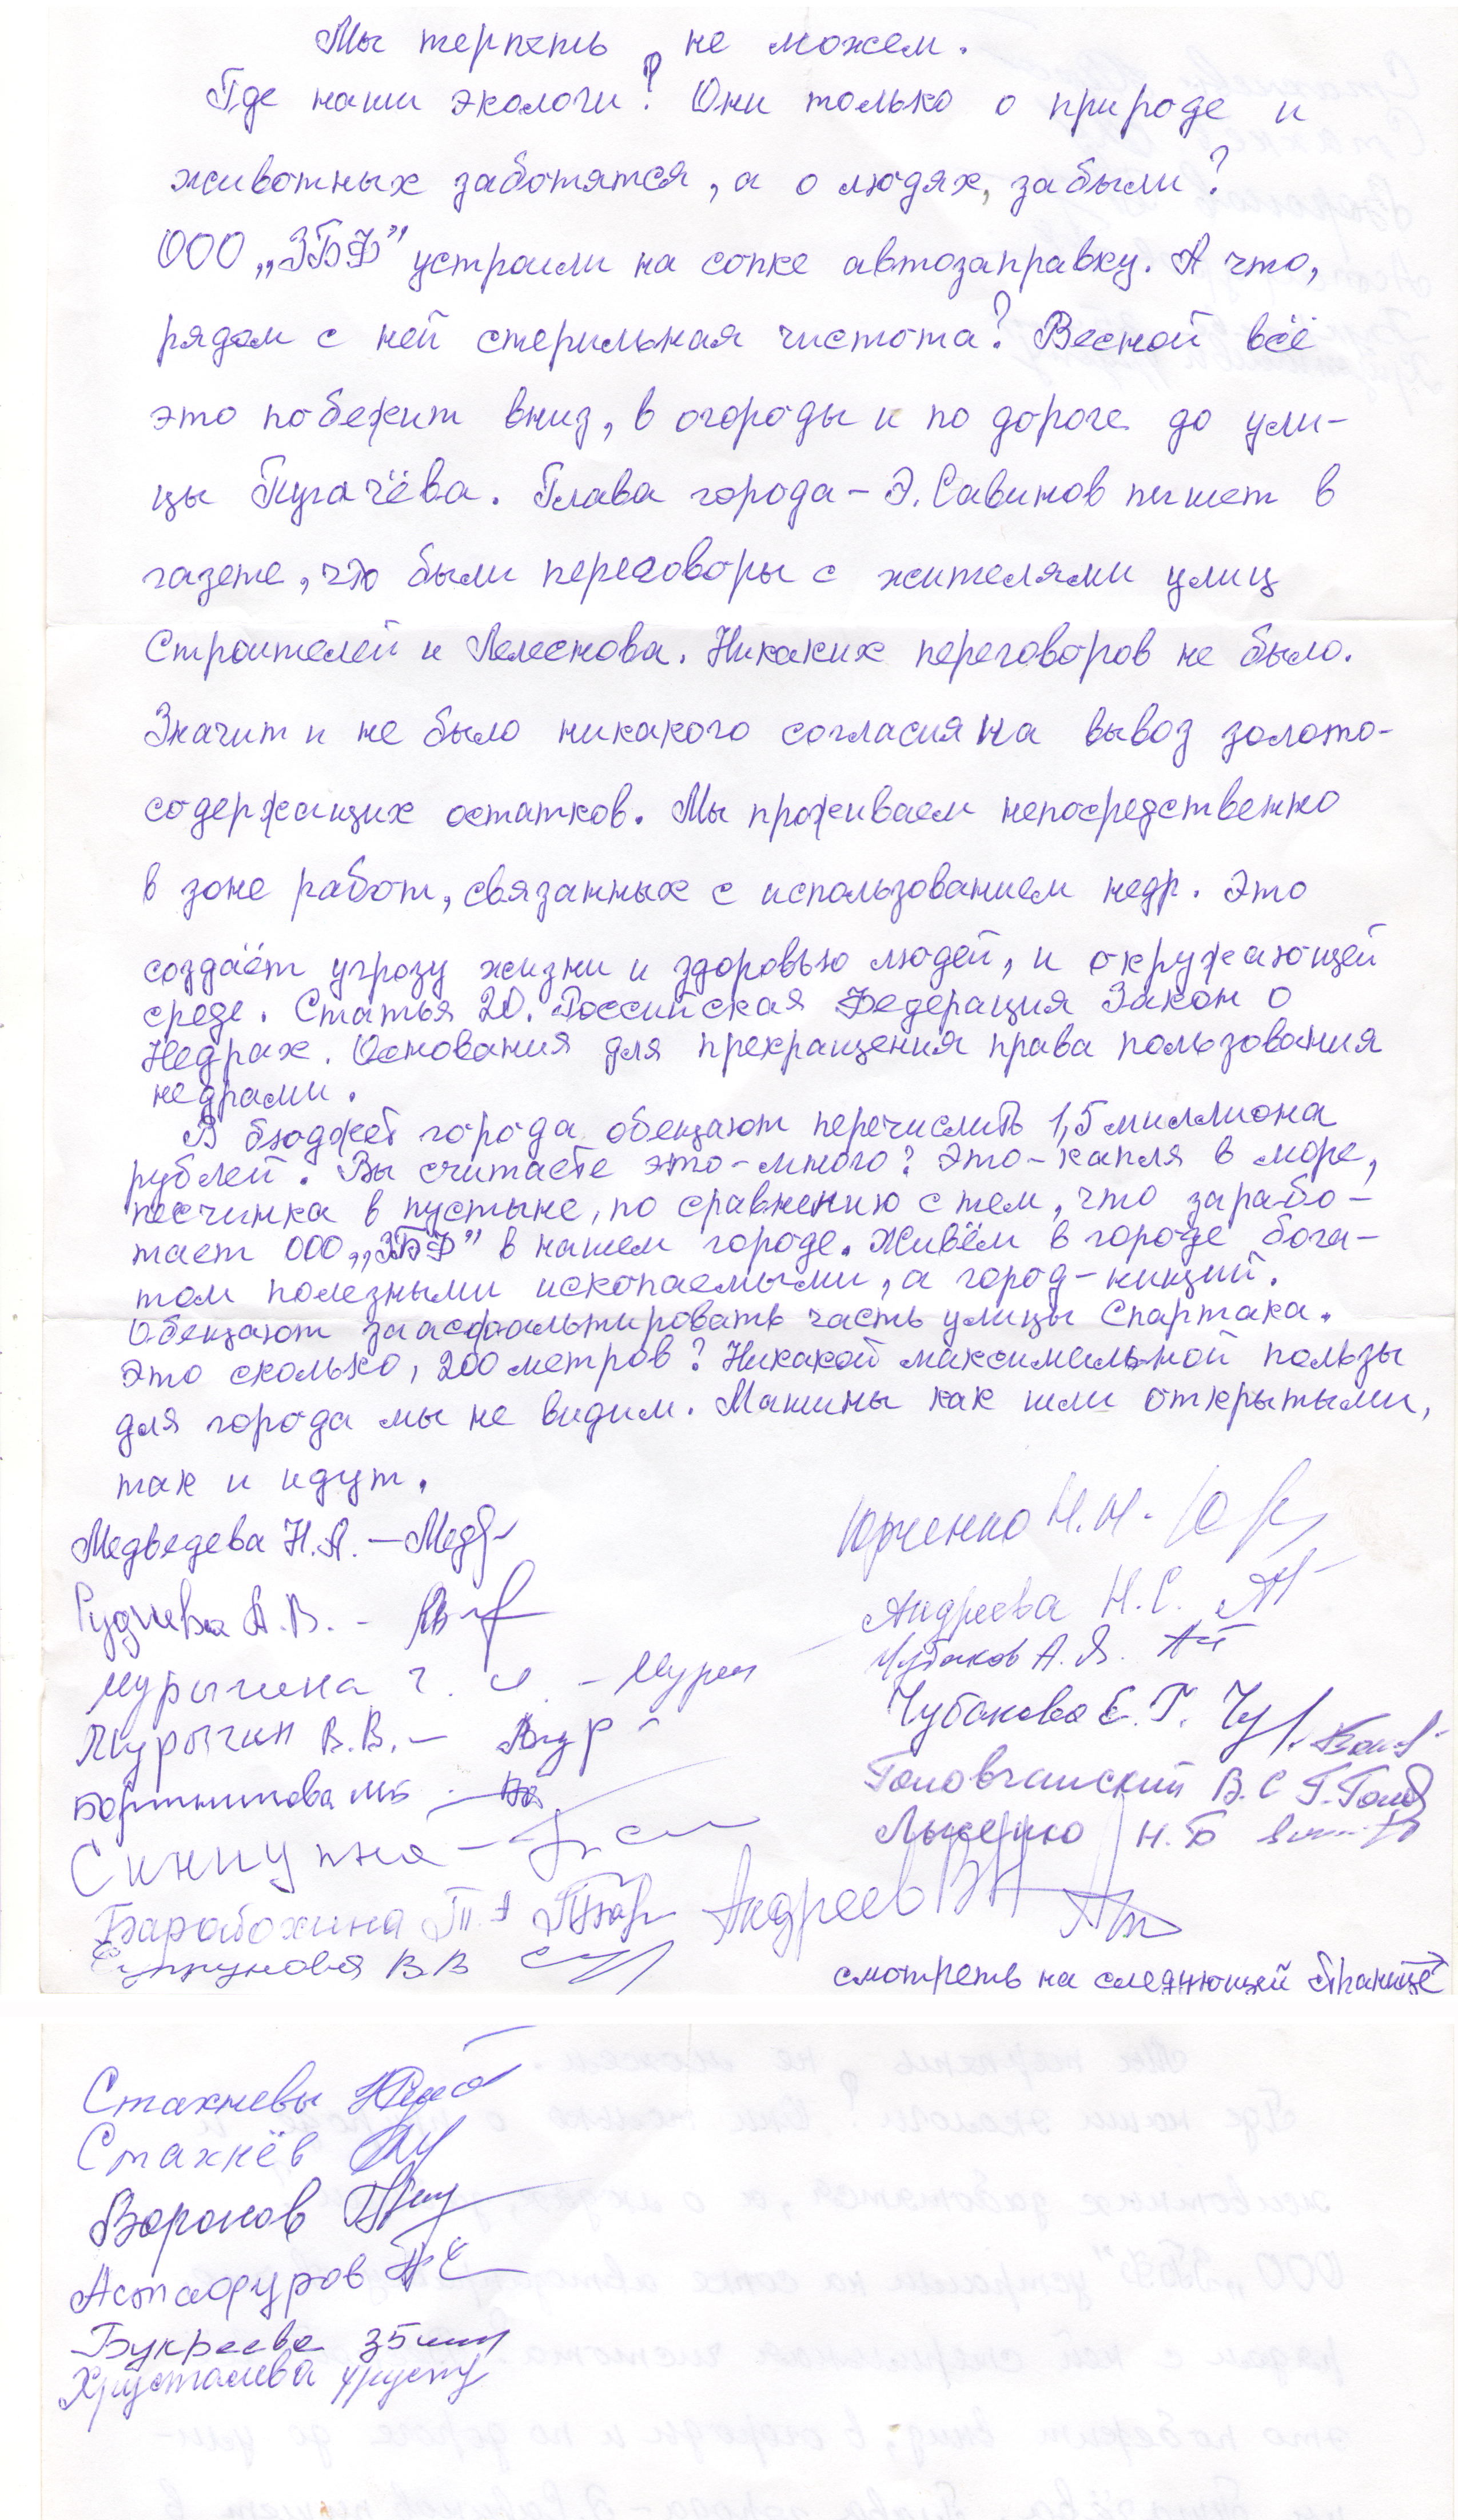 Мы терпеть не можем.
Где наши экологи? Они только о природе и
животных заботятся, а о людях, забыли?
ООО „ЗБФ" устроили на сопке автозаправку. А что,
рядом с ней стерильная чистота? Весной всё
это побежит вниз, в огороды и по дороге до ули-
цы Пугачёва. Глава города - Э. Савинов пишет в
газете, что были переговоры с жителями улиц
Строителей и Лелеснова. Никаких переговоров не было.
Значит и не было никакого согласия на вывоз золото-
содержащих остатков. Мы проживаем непосредственно
в зоне работ, связанных с использованием недр. Это
создаёт угрозу жизни и здоровью людей, и окружающей
среде. Статья 20. Российская Федерация Закон о
Недрах. Основания для прекращения права пользования
недрами.
В бюджет города обещают перечислить 1,5 миллиона
рублей. Вы считаете это - много? Это - капля в море,
песчинка в пустыне, по сравнению с тем, что зарабо-
тает ООО „ЗБФ" в нашем городе. Живём в городе бога-
том полезными ископаемыми, а город - нищий.
Обещают заасфальтировать часть улицы Спартака.
Это сколько, 200 метров? Никакой максимальной пользы
для города мы не видим. Машины как шли открытыми,
так и идут.
Медведева Н.А. - Медв
Юрченко Н.Н. -
Руднева А.В. -
Андреева Н.С.
Чубаков А.Я.
Мурыгина Г. И. - Мурыг
Чубакова Е.Г. Чу
Мурыгин В.В. -
Головчанский В.С Г. Голов
Бортникова МБ
Лыченко Н.Б
Андреев В
Барабохина Т.А ТБар
Супрунова В.В
смотреть на следующей странице →
Стахневы
Стахнёв
Воронов
Астафуров
Букреева
Хрусталева Хруст